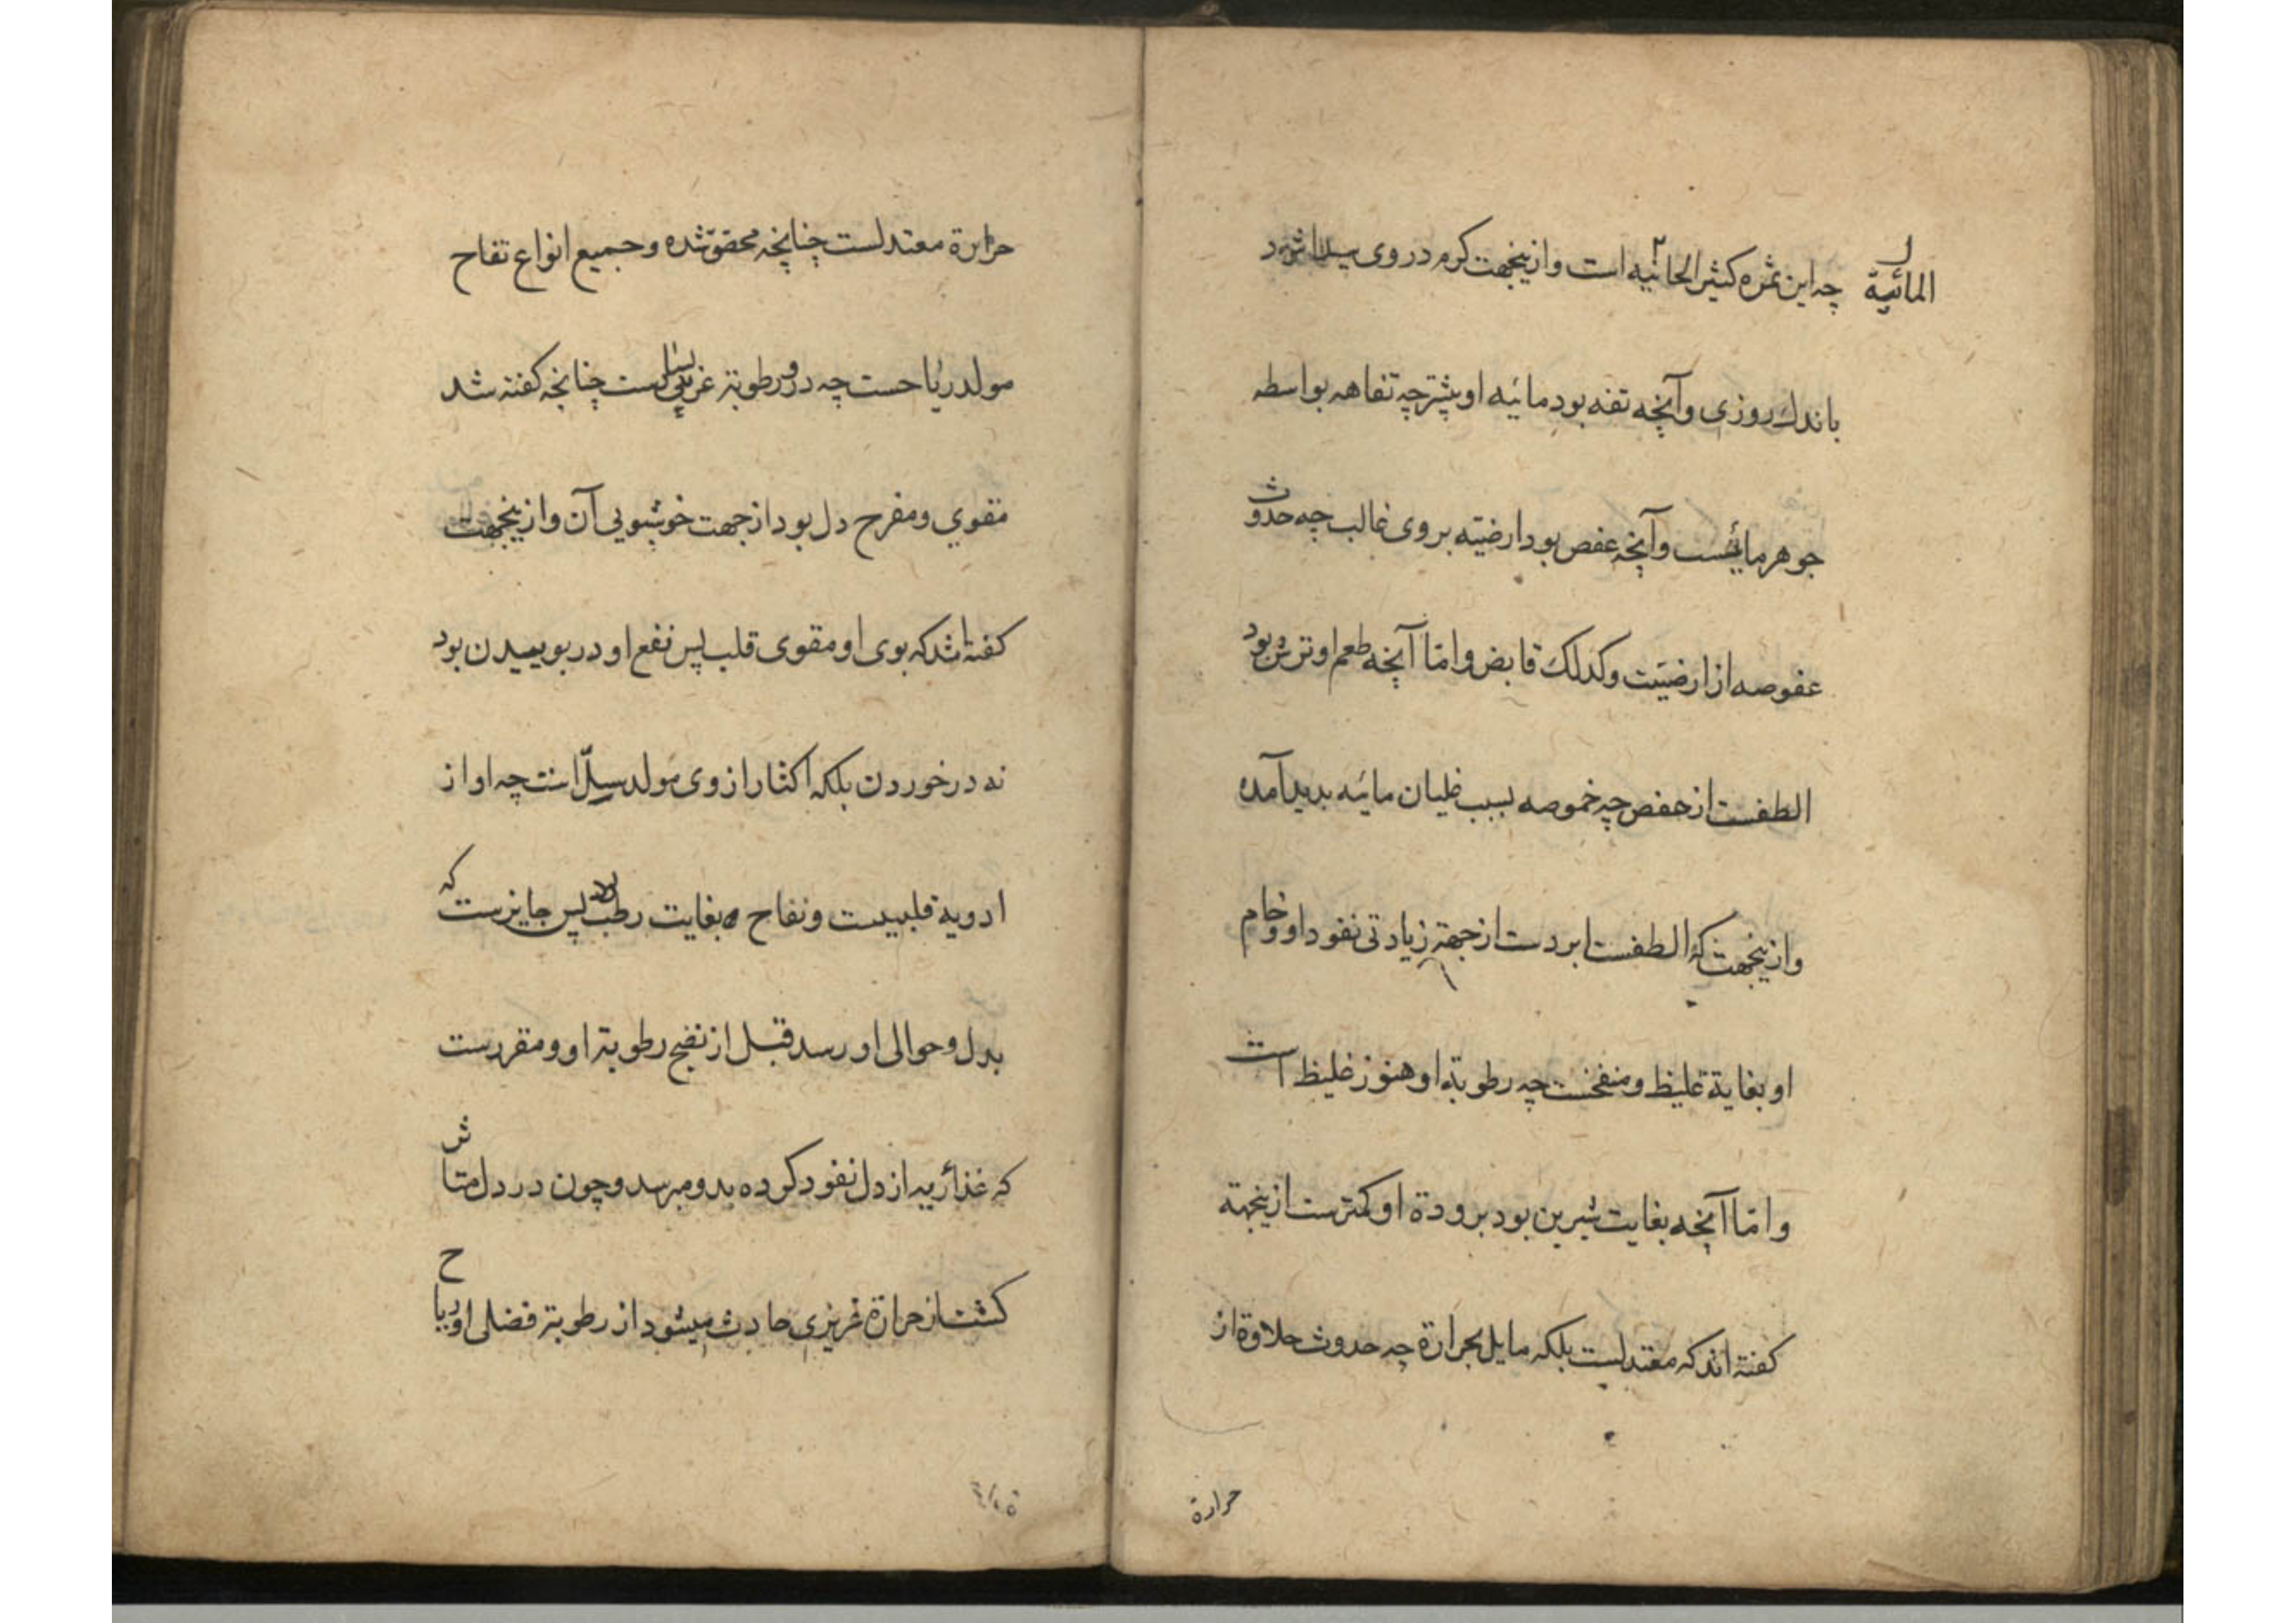 المائیة
چه این ثمره کثیر الحائیه است و ازینجهت کرم در وی پیدا شود
باندك روزی و آنچه تفه بود مائیه او بیشتر چه تفاهه بواسطه
جوهر مائیست و آنچه عفص بود ارضیّه بر وی غالب چه حدوث
عفوصه از ارضیّت و کدلك قابض و امّا آنچه طعم او ترش بود
الطفست از عفص چه خموصه بسبب غلیان مائیه بدید آمده
و ازینجهت که الطفست ابردست از جهة زیادتی نفود او و خام
او بغایة غلیظ و منفخست چه رطوبة او هنوز غلیظ است
و امّا آنچه بغایت شیرین بود برودة او کمترست ازینجهة
کفته اند که معتدلست بلکه مایل بحرارة چه حدوث حلاوة از
حرارة
حرارة معتدلست چنانچه محقق شده و جمیع انواع تفاح
مولد ریاحست چه در و رطوبة غریبی است چنانچه کفته شد
مقوي و مفرح دل بود از جهت خوشبویی آن و ازینجهت
کفته اند که بوی او مقوی قلب پس نفع او در بوییدن بود
نه در خوردن بلکه اکثار از وی مولد سلّ است چه او از
ادویة قلبیست و تفاح بغایت رطب پس جایزست که
بدل و حوالی او رسد قبل از نضج رطوبة او و مقررست
که غذا ریه از دل نفود کرده بدو میرسد و چون در دل متاثر
کشت از حرارة غریزی حادث میشود از رطوبة فضلی او ریاح